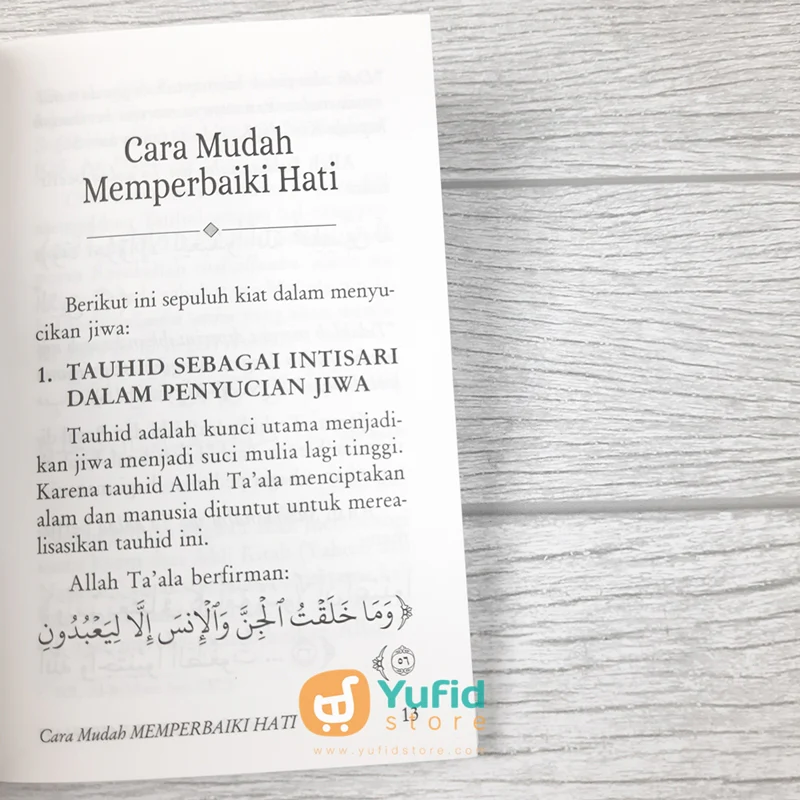 Cara Mudah
Memperbaiki Hati
Berikut ini sepuluh kiat dalam menyu-
cikan jiwa:
1. TAUHID SEBAGAI INTISARI
DALAM PENYUCIAN JIWA
Tauhid adalah kunci utama menjadi-
kan jiwa menjadi suci mulia lagi tinggi.
Karena tauhid Allah Ta’ala menciptakan
alam dan manusia dituntut untuk merea-
lisasikan tauhid ini.
Allah Ta’ala berfirman:
﴿وَمَا خَلَقْتُ ٱلْجِنَّ وَٱلْإِنسَ إِلَّا لِيَعْبُدُونِ
٥٦ ﴾
Cara Mudah MEMPERBAIKI HATI 13
Yufid
store
www.yufidstore.com